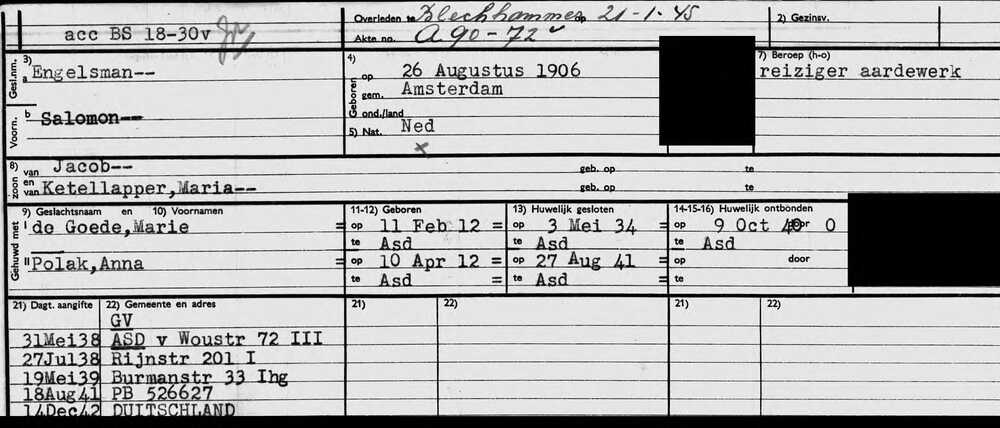 Overleden te Blechhammer op 21-1-45
2) Gezinsv.
acc BS 18-30v
Akte no. A 90-72
3)
Gesl.nm. a Engelsman--
4)
Geboren op 26 Augustus 1906
7) Beroep (h-o)
reiziger aardewerk
gem. Amsterdam
Voorn. b Salomon--
ond./land
5) Nat. Ned
x
8) zoon van Jacob-- geb. op te
en van Ketellapper,Maria-- geb. op te
9) Geslachtsnaam en 10) Voornamen 11-12) Geboren 13) Huwelijk gesloten 14-15-16) Huwelijk ontbonden
Gehuwd met I de Goede,Marie = op 11 Feb 12 = op 3 Mei 34 = op 9 Oct 40 door O
te Asd te Asd te Asd
II Polak,Anna = op 10 Apr 12 = op 27 Aug 41 = op door
te Asd = te Asd = te
21) Dagt. aangifte 22) Gemeente en adres 21) 22) 21) 22)
GV
31Mei38 ASD v Woustr 72 III
27Jul38 Rijnstr 201 I
19Mei39 Burmanstr 33 Ihg
18Aug41 PB 526627
14Dec42 DUITSCHLAND